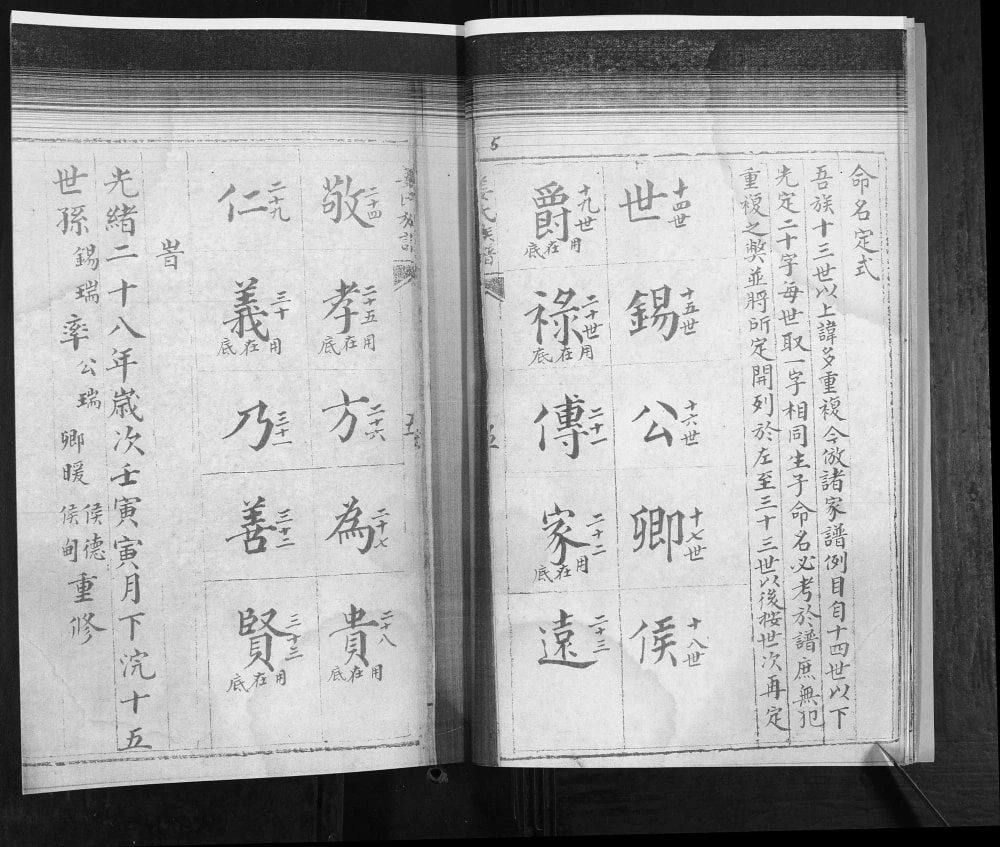 5
命名定式
吾族十三世以上諱多重複今倣諸家譜例目自十四世以下
先定二十字每世取一字相同生子命名必考於譜庶無犯
重複之獘並將所定開列於左至三十三世以後按世次再定
世 十四世
錫 十五世
公 十六世
卿 十七世
侯 十八世
爵 十九世 用在底
祿 二十世 用在底
傳 二十一
家 二十二 用在底
遠 二十三
姜氏族譜
五
敬 二十四
孝 二十五 用在底
方 二十六
為 二十七
貴 二十八 用在底
仁 二十九
義 三十 用在底
乃 三十一
善 三十二
賢 三十三 用在底
旹
光緒二十八年歲次壬寅寅月下浣十五
世孫錫瑞率公瑞卿暖侯德侯甸重修